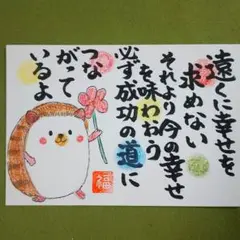 遠くに幸せを
求めない
それより今の幸せ
を味わおう
必ず成功の道に
つな
がって
いるよ
福